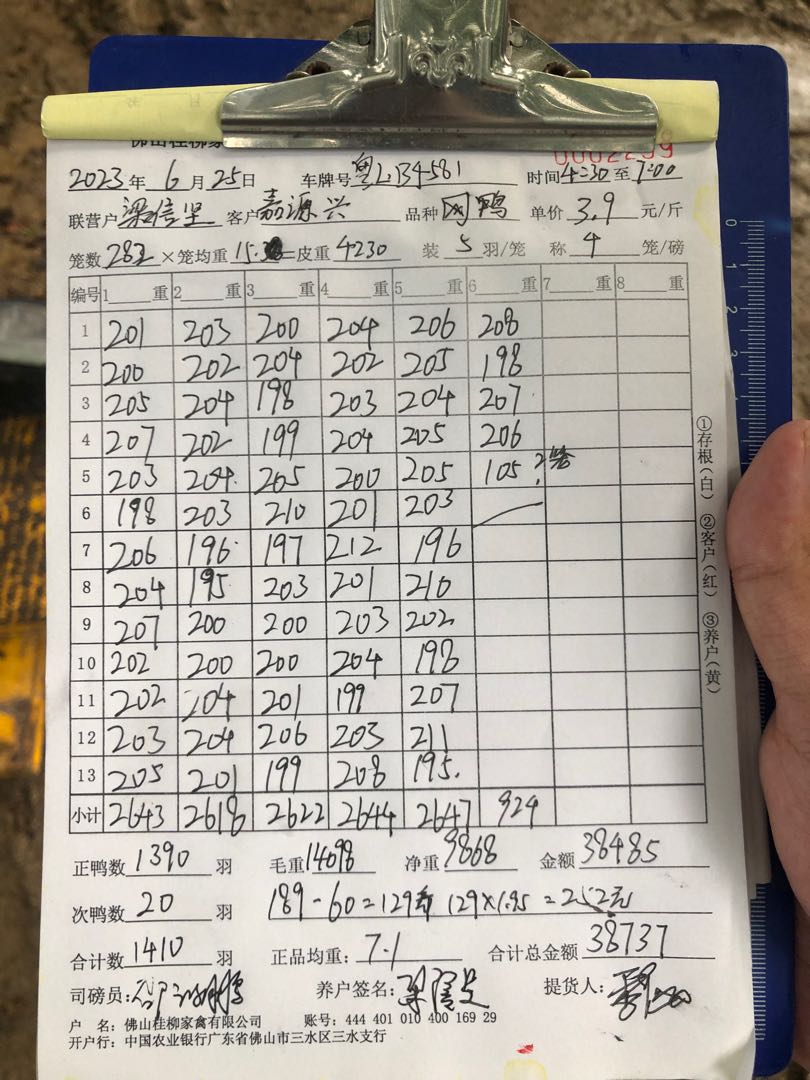 佛山桂柳家
0002299
2023年 6 月 25日 车牌号 粤L·B4581 时间4:30至7:00
联营户 梁信坚 客户 嘉源兴 品种 肉鸭 单价 3.9 元/斤
笼数 282 ×笼均重 15 皮重 4230 装 5 羽/笼 称 4 笼/磅
编号 1 重 2 重 3 重 4 重 5 重 6 重 7 重 8 重
1 201 203 200 204 206 208
2 200 202 204 202 205 198
3 205 204 198 203 204 207
4 207 202 199 204 205 206
5 203 204 205 200 205 105 2笼
6 198 203 210 201 203
7 206 196 197 212 196
8 204 195 203 201 210
9 207 200 200 203 202
10 202 200 200 204 198
11 202 204 201 199 207
12 203 204 206 203 211
13 205 201 199 208 195
小计 2643 2618 2622 2644 2647 924
正鸭数 1390 羽 毛重 14098 净重 9868 金额 38485
次鸭数 20 羽 189-60=129斤 129×1.95=252元
合计数 1410 羽 正品均重: 7.1 合计总金额 38737
司磅员: 养户签名: 梁信坚 提货人:
户 名: 佛山桂柳家禽有限公司 账号: 444 401 010 400 169 29
开户行: 中国农业银行广东省佛山市三水区三水支行
①存根(白) ②客户(红) ③养户(黄)
0
1
2
3